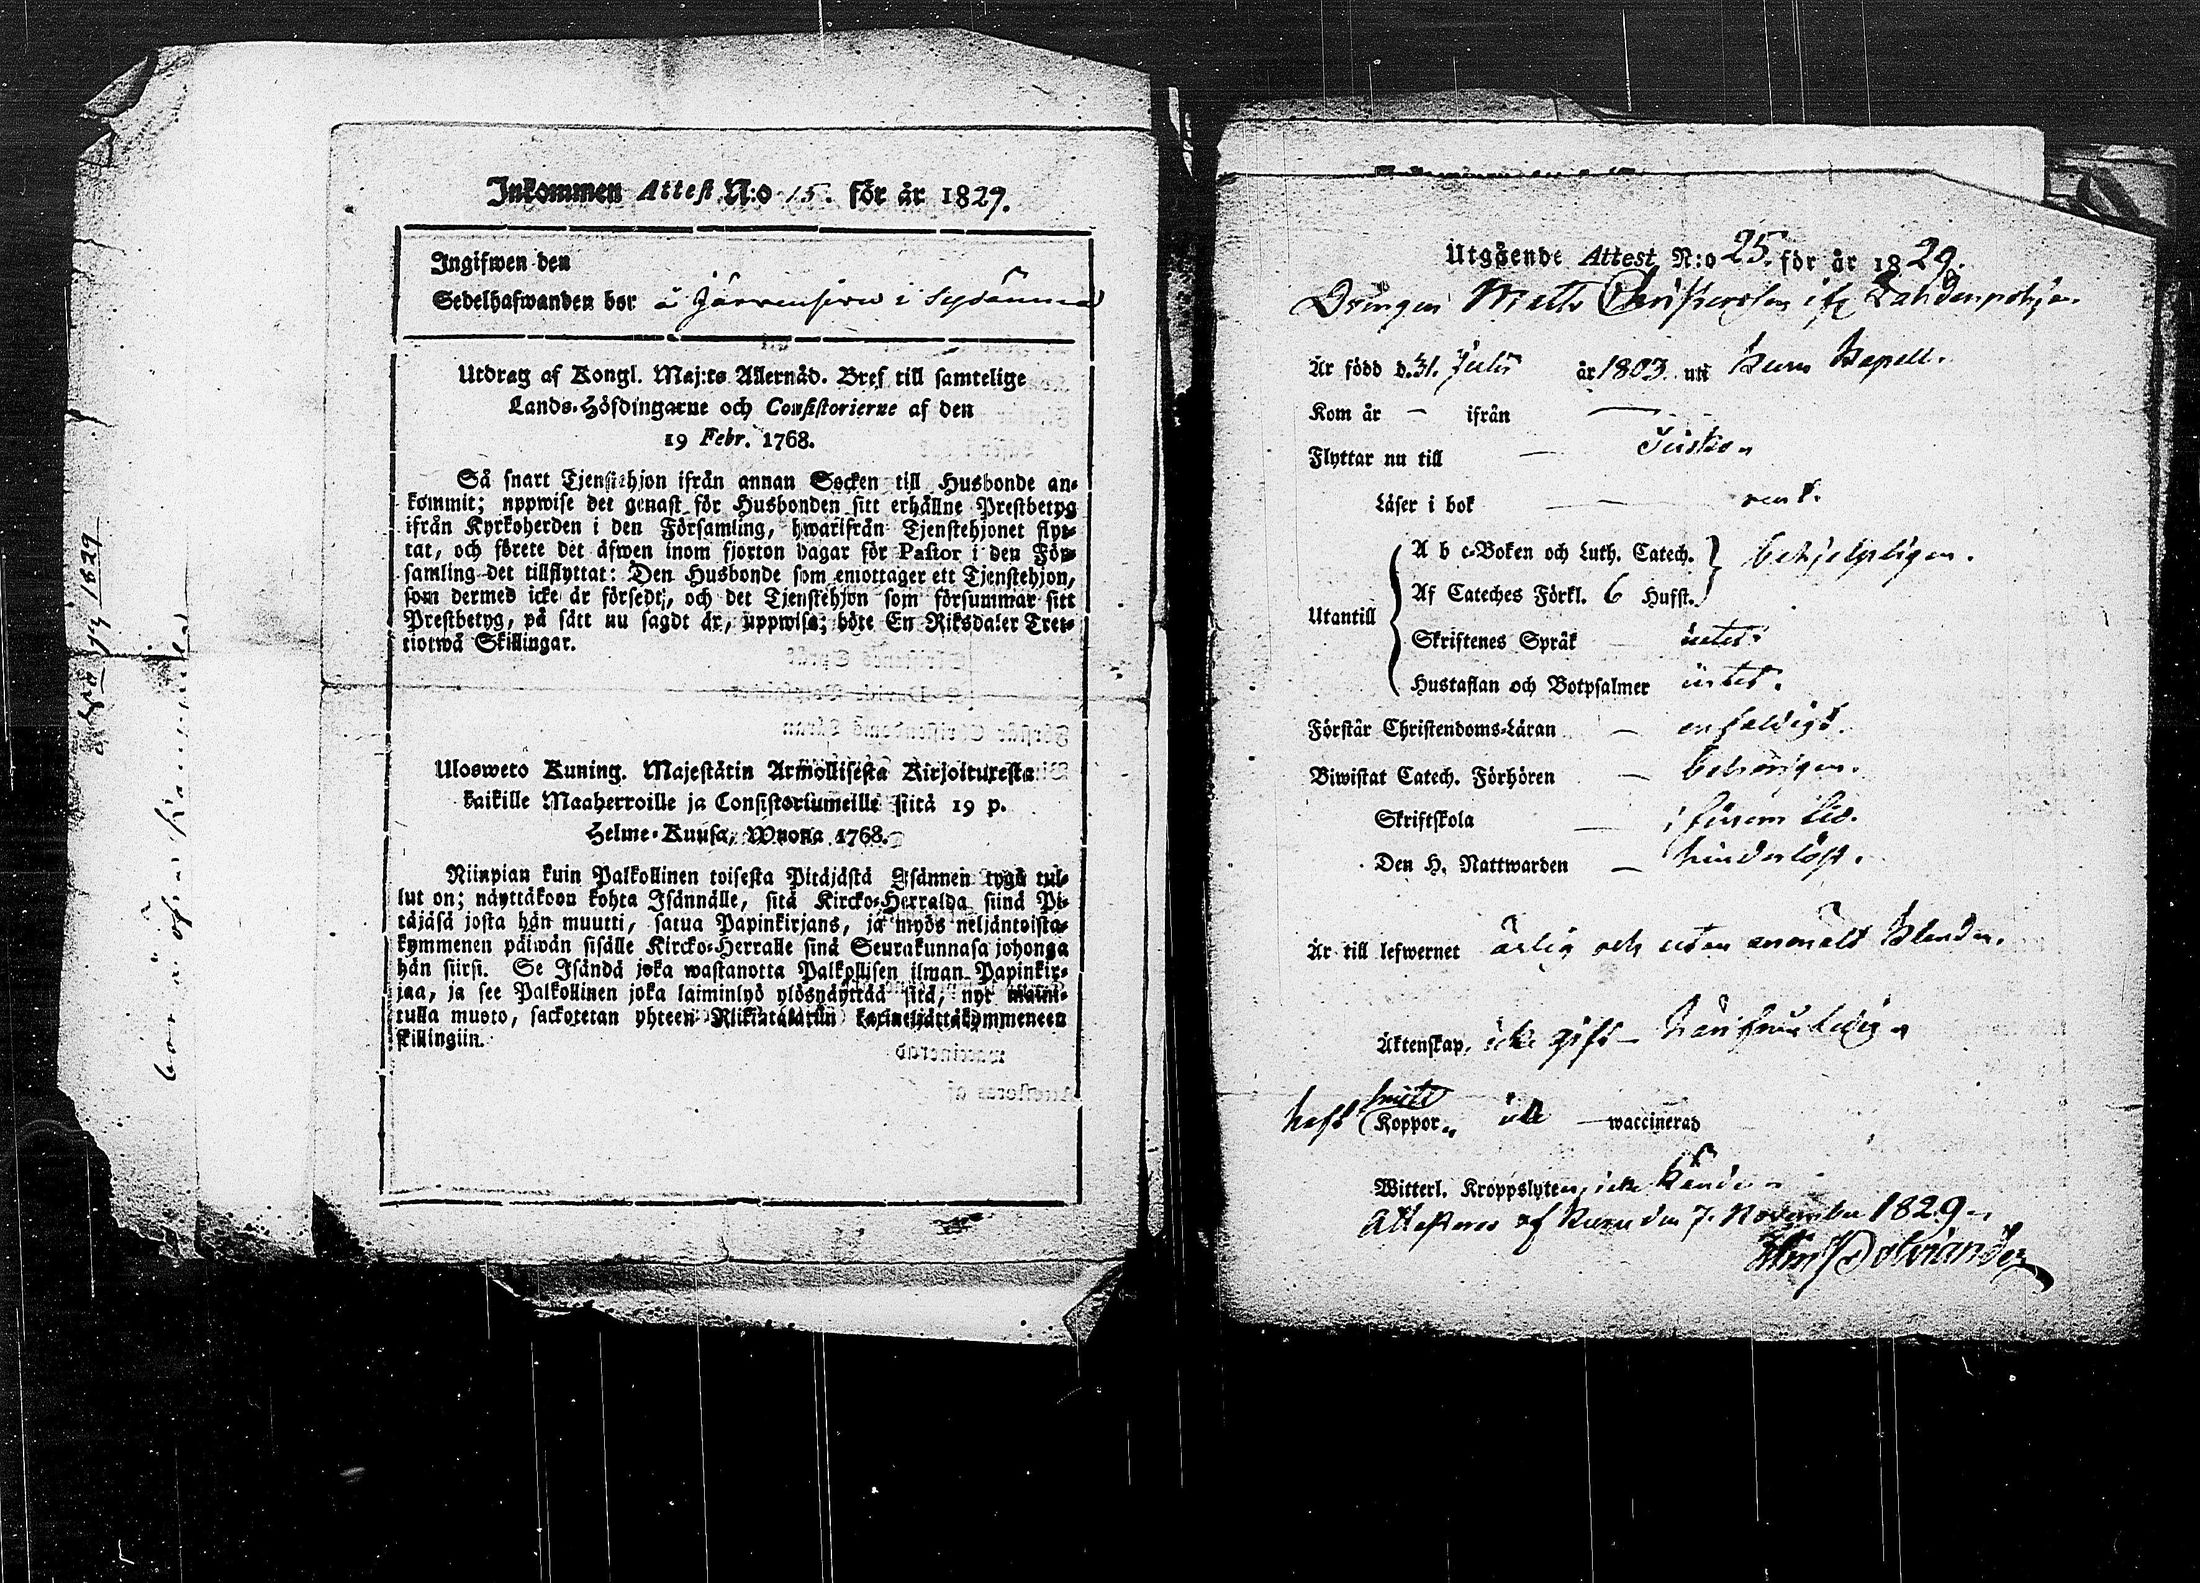 Inkommen Attest N:o 15. för år 1829.
Ingifwen den
Sedelhafwanden bor å Järvensivu i Sysänmaa
Utdrag af Kongl. Maj:ts Allernåd. Bref till samtelige
Lands-Höfdingarne och Consistorierne af den
19 Febr. 1768.
Så snart Tjenstehjon ifrån annan Socken till Husbonde an-
kommit; uppwise det genast för Husbonden sitt erhållne Prestbetyg
ifrån Kyrkoherden i den Församling, hwarifrån Tjenstehjonet flyt-
tat, och förete det äfwen inom fjorton dagar för Pastor i den För-
samling det tillflyttat: Den Husbonde som emottager ett Tjenstehjon,
som dermed icke är försedt, och det Tjenstehjon som försummar sitt
Prestbetyg, på sätt nu sagdt är, uppwisa; böte En Riksdaler Tret-
tiotwå Skillingar.
Uloswetö Kuning. Majestätin Armollisesta Kirjoituxesta
kaikille Maaherroille ja Consistoriumeille siitä 19 p.
Helme-Kuusa, Wuonna 1768.
Niinpian kuin Palkollinen toisesta Pitäjästä Isännen tygö tul-
lut on; näyttäköön kohta Isännälle, sitä Kircko-Herralda siinä Pi-
täjäsä josta hän muutti, saatua Papinkirjans, ja myös neljäntoista-
kymmenen päiwän sisälle Kircko-Herralle sinä Seurakunnasa johonga
hän siirsi. Se Isändä joka wastanotta Palkollisen ilman Papinkir-
jaa, ja see Palkollinen joka laiminlyö ylösnäyttää sitä, nyt maini-
tulla muoto, sackotetan yhteen Rikintalariin kaxineljättäkymmeneen
skillingiin.
Utgående Attest N:o 25. för år 1829.
Drängen Matts Christersson ifr Lahdenpohja
Är född d. 31. Julii år 1803. uti Kuru Kapell.
Kom år — ifrån —
Flyttar nu till — Teisko
Läser i bok — rent.
Utantill
A b c-Boken och Luth. Catech.
behjelpligen.
Af Cateches Förkl. 6 Hufst.
Skriftenes Språk — intet.
Hustaflan och Botpsalmer intet.
Förstår Christendoms-Läran — enfaldigt.
Biwistat Catech. Förhören — behörigen.
Skriftskola — i sinom tid.
Den H. Nattwarden — hinderlöst.
Är till lefwernet ärlig och utan anmält klander.
Äktenskap, icke gift — härifrån ledig
haft
Koppor icke — waccinerad
Witterl. Kroppslyten icke kände
Attesteras af Kuru den 7. November 1829